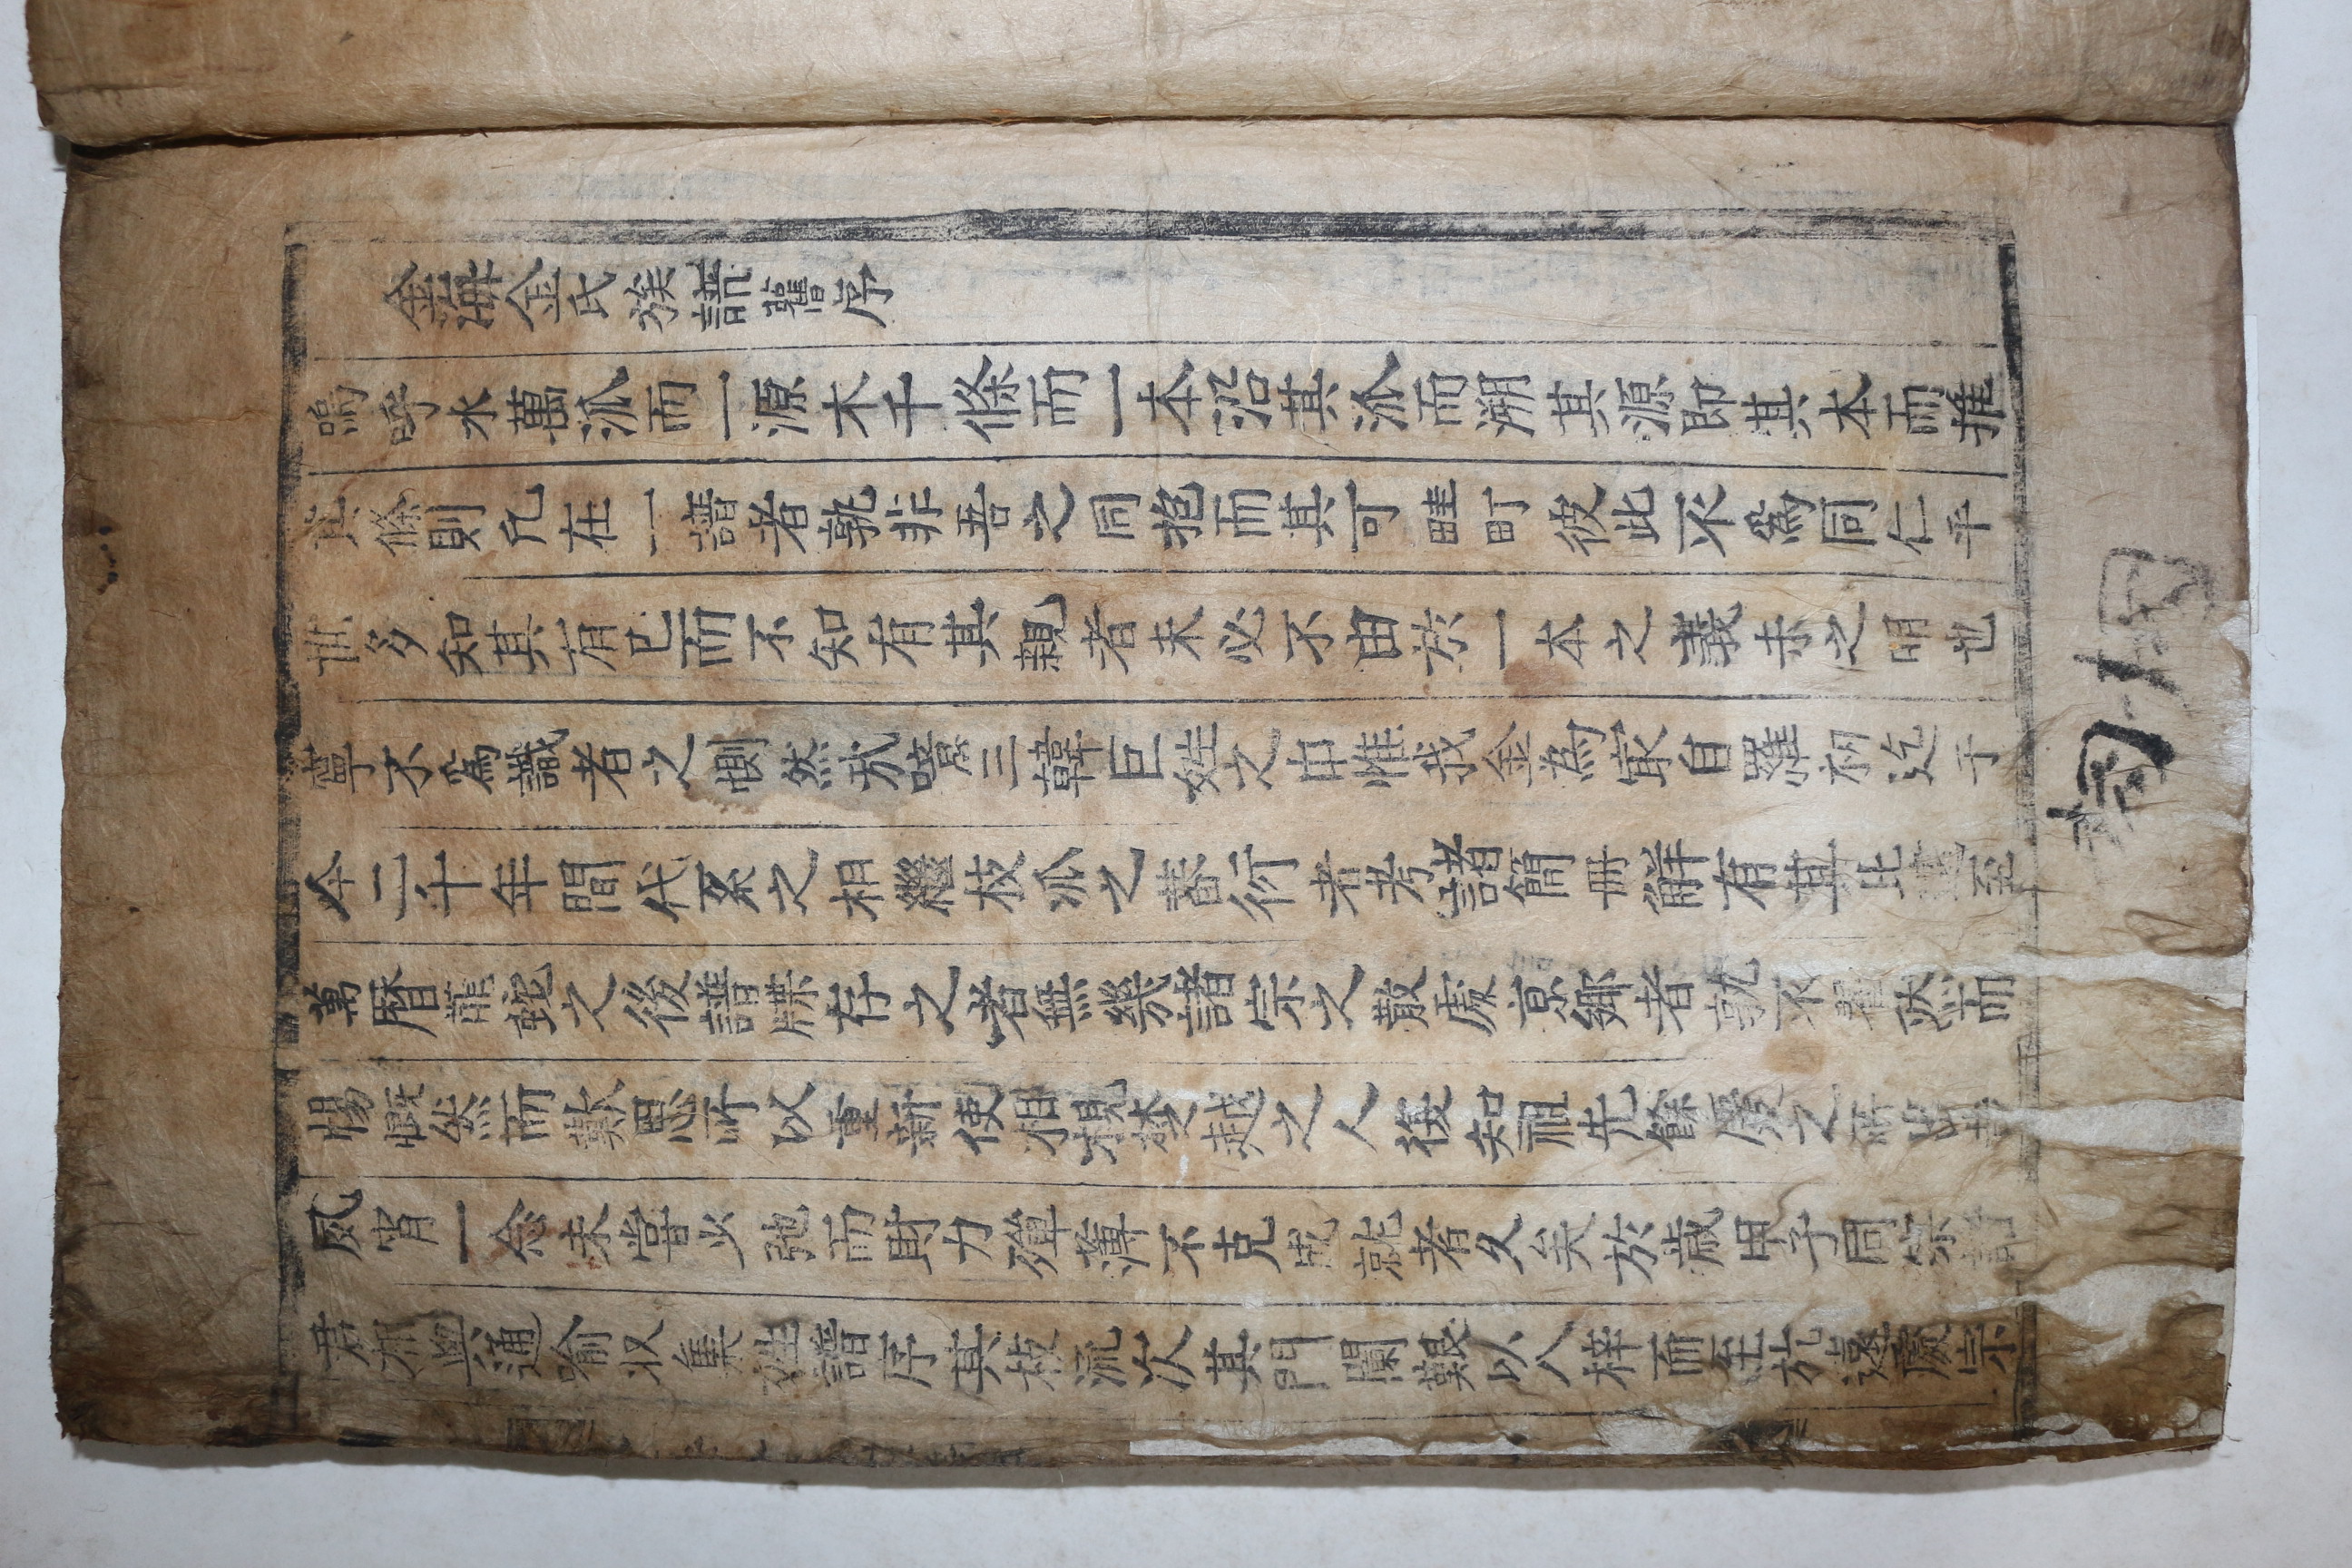 金海金氏族譜舊序
嗚呼水萬派而一源木千條而一本沿其派而溯其源即其本而推
其條則凡在一譜者孰非吾之同抱而其可畦町彼此不爲同仁乎
世多知其有己而不知有其親者未必不由於一本之義未之明也
寧不爲識者之惻然哉噫三韓巨姓之中惟我金爲最自羅初迄于
今二千年間代系之相繼枝派之蕃衍者考諸簡冊鮮有其比
萬曆龍蛇之後譜牒存之者無幾諸宗之散處京鄉者孰不 然而
惕慨然而歎思所以重新使相視楚越之人復知祖先餘廕之
夙宵一念未嘗少弛而財力殫薄不克成就者久矣於歲甲子同宗
君 通喻收集姓譜序其枝流次其門闌艱以入梓而至於 宗